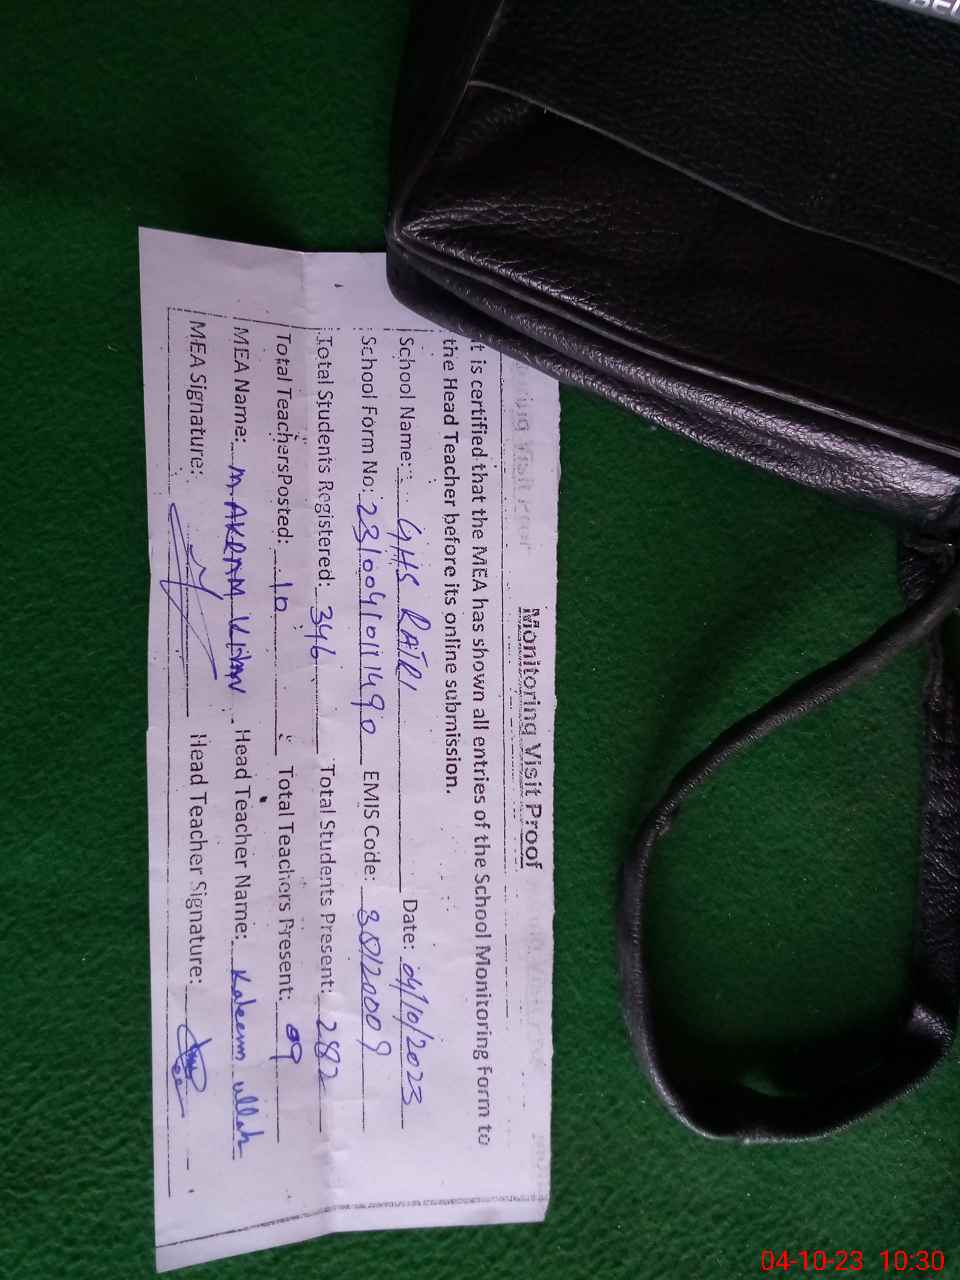 Monitoring Visit Proof
t is certified that the MEA has shown all entries of the School Monitoring Form to
the Head Teacher before its online submission.
School Name: GHS RATRI Date: 04/10/2023
School Form No: 23100410111490 EMIS Code: 38120009
Total Students Registered: 346 Total Students Present: 282
Total TeachersPosted: 10 Total Teachers Present: 09
MEA Name: M. AKRAM KHAN Head Teacher Name: Kaleem ullah
MEA Signature: Head Teacher Signature:
04-10-23 10:30